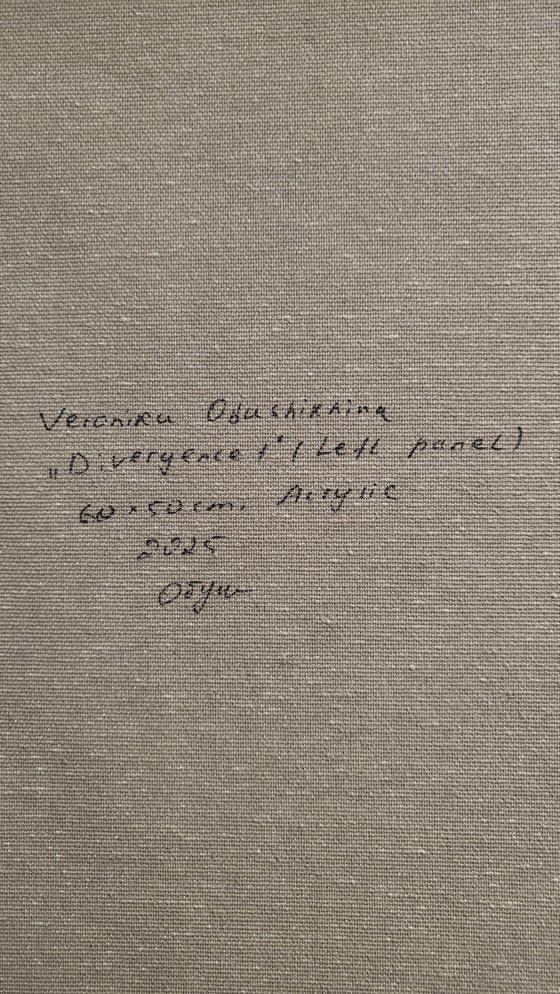 Veronika Obushikhina
„Divergence 1" (Left panel)
60 × 50 cm. Acrylic
2025
Обуш